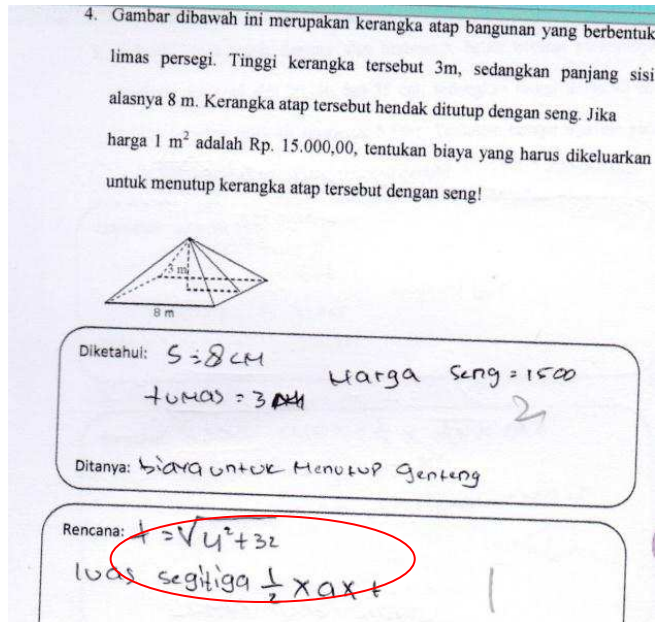 4. Gambar dibawah ini merupakan kerangka atap bangunan yang berbentuk
limas persegi. Tinggi kerangka tersebut 3m, sedangkan panjang sisi
alasnya 8 m. Kerangka atap tersebut hendak ditutup dengan seng. Jika
harga 1 m² adalah Rp. 15.000,00, tentukan biaya yang harus dikeluarkan
untuk menutup kerangka atap tersebut dengan seng!
3 m
8 m
Diketahui: S = 8 cM
Harga seng = 1500
t LiMas = 3
2
Ditanya: biaya untuk Menutup genteng
Rencana: t = √4²+32
luas segitiga ½ x a x t
1